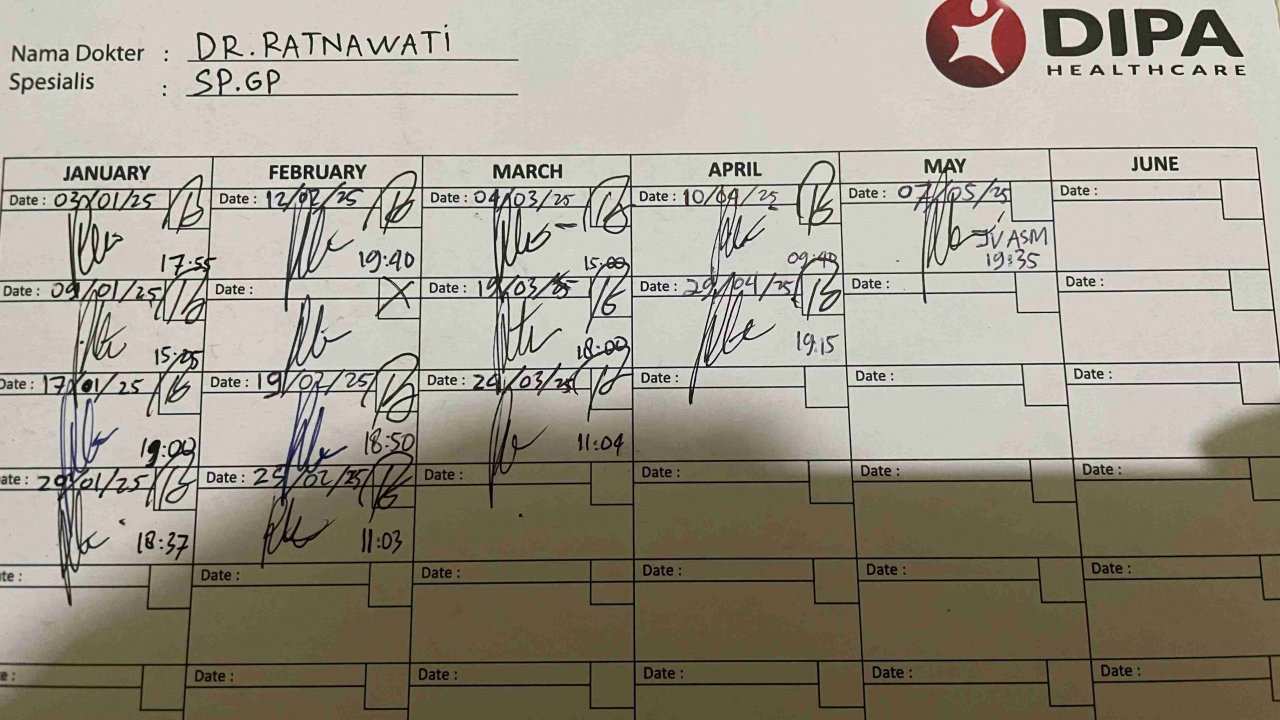 Nama Dokter : DR. RATNAWATI
Spesialis : SP.GP
DIPA
HEALTHCARE
JANUARY FEBRUARY MARCH APRIL MAY JUNE
Date : 03/01/25 Date : 12/02/25 Date : 04/03/25 Date : 10/04/25 Date : 07/05/25 Date :
17:55 19:40 15:00 09:40 JV ASM
19:35
Date : 09/01/25 Date : X Date : 19/03/25 Date : 29/04/25 Date : Date :
15:05 18:00 19:15
Date : 17/01/25 Date : 19/02/25 Date : 24/03/25 Date : Date : Date :
19:00 18:50 11:04
ate : 29/01/25 Date : 25/02/25 Date : Date : Date : Date :
18:37 11:03
te : Date : Date : Date : Date : Date :
e : Date : Date : Date : Date : Date :